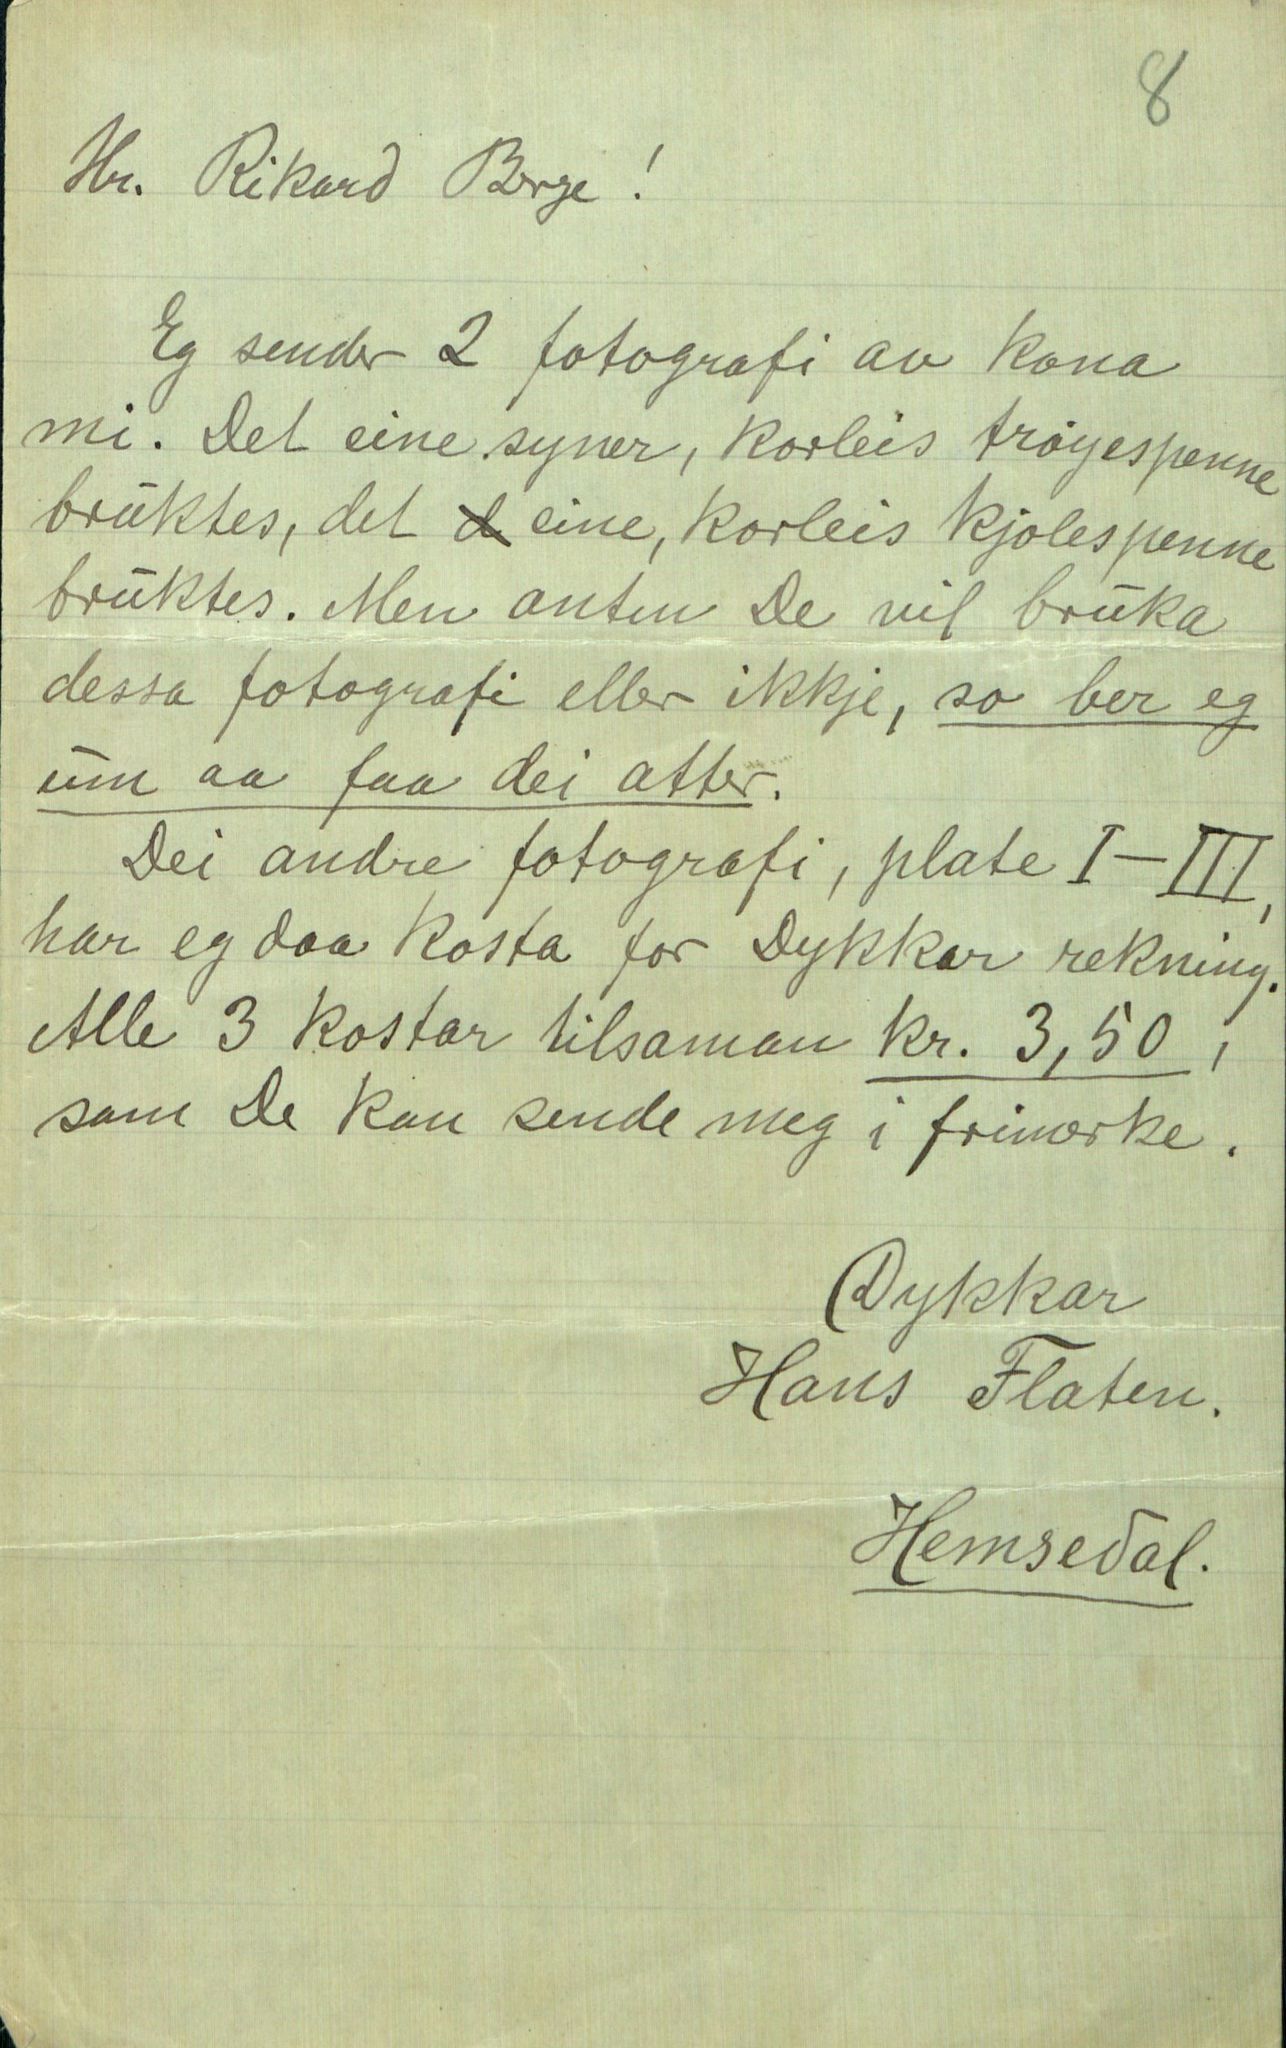 8
Hr. Rikard Berge!
Eg sender 2 fotografi av kona
mi. Det eine syner, korleis trøyespenne
brŭktes, det d eine, korleis kjolespenne
brŭktes. Men anten De vil brŭka
dessa fotografi eller ikkje, so ber eg
ŭm aa faa dei atter.
Dei andre fotografi, plate I-III,
har eg daa kosta for Dykkar rekning.
Alle 3 kostar tilsaman kr. 3,50,
som De kan sende meg i frimerke.
Dykkar
Hans Flaten.
Hemsedal.